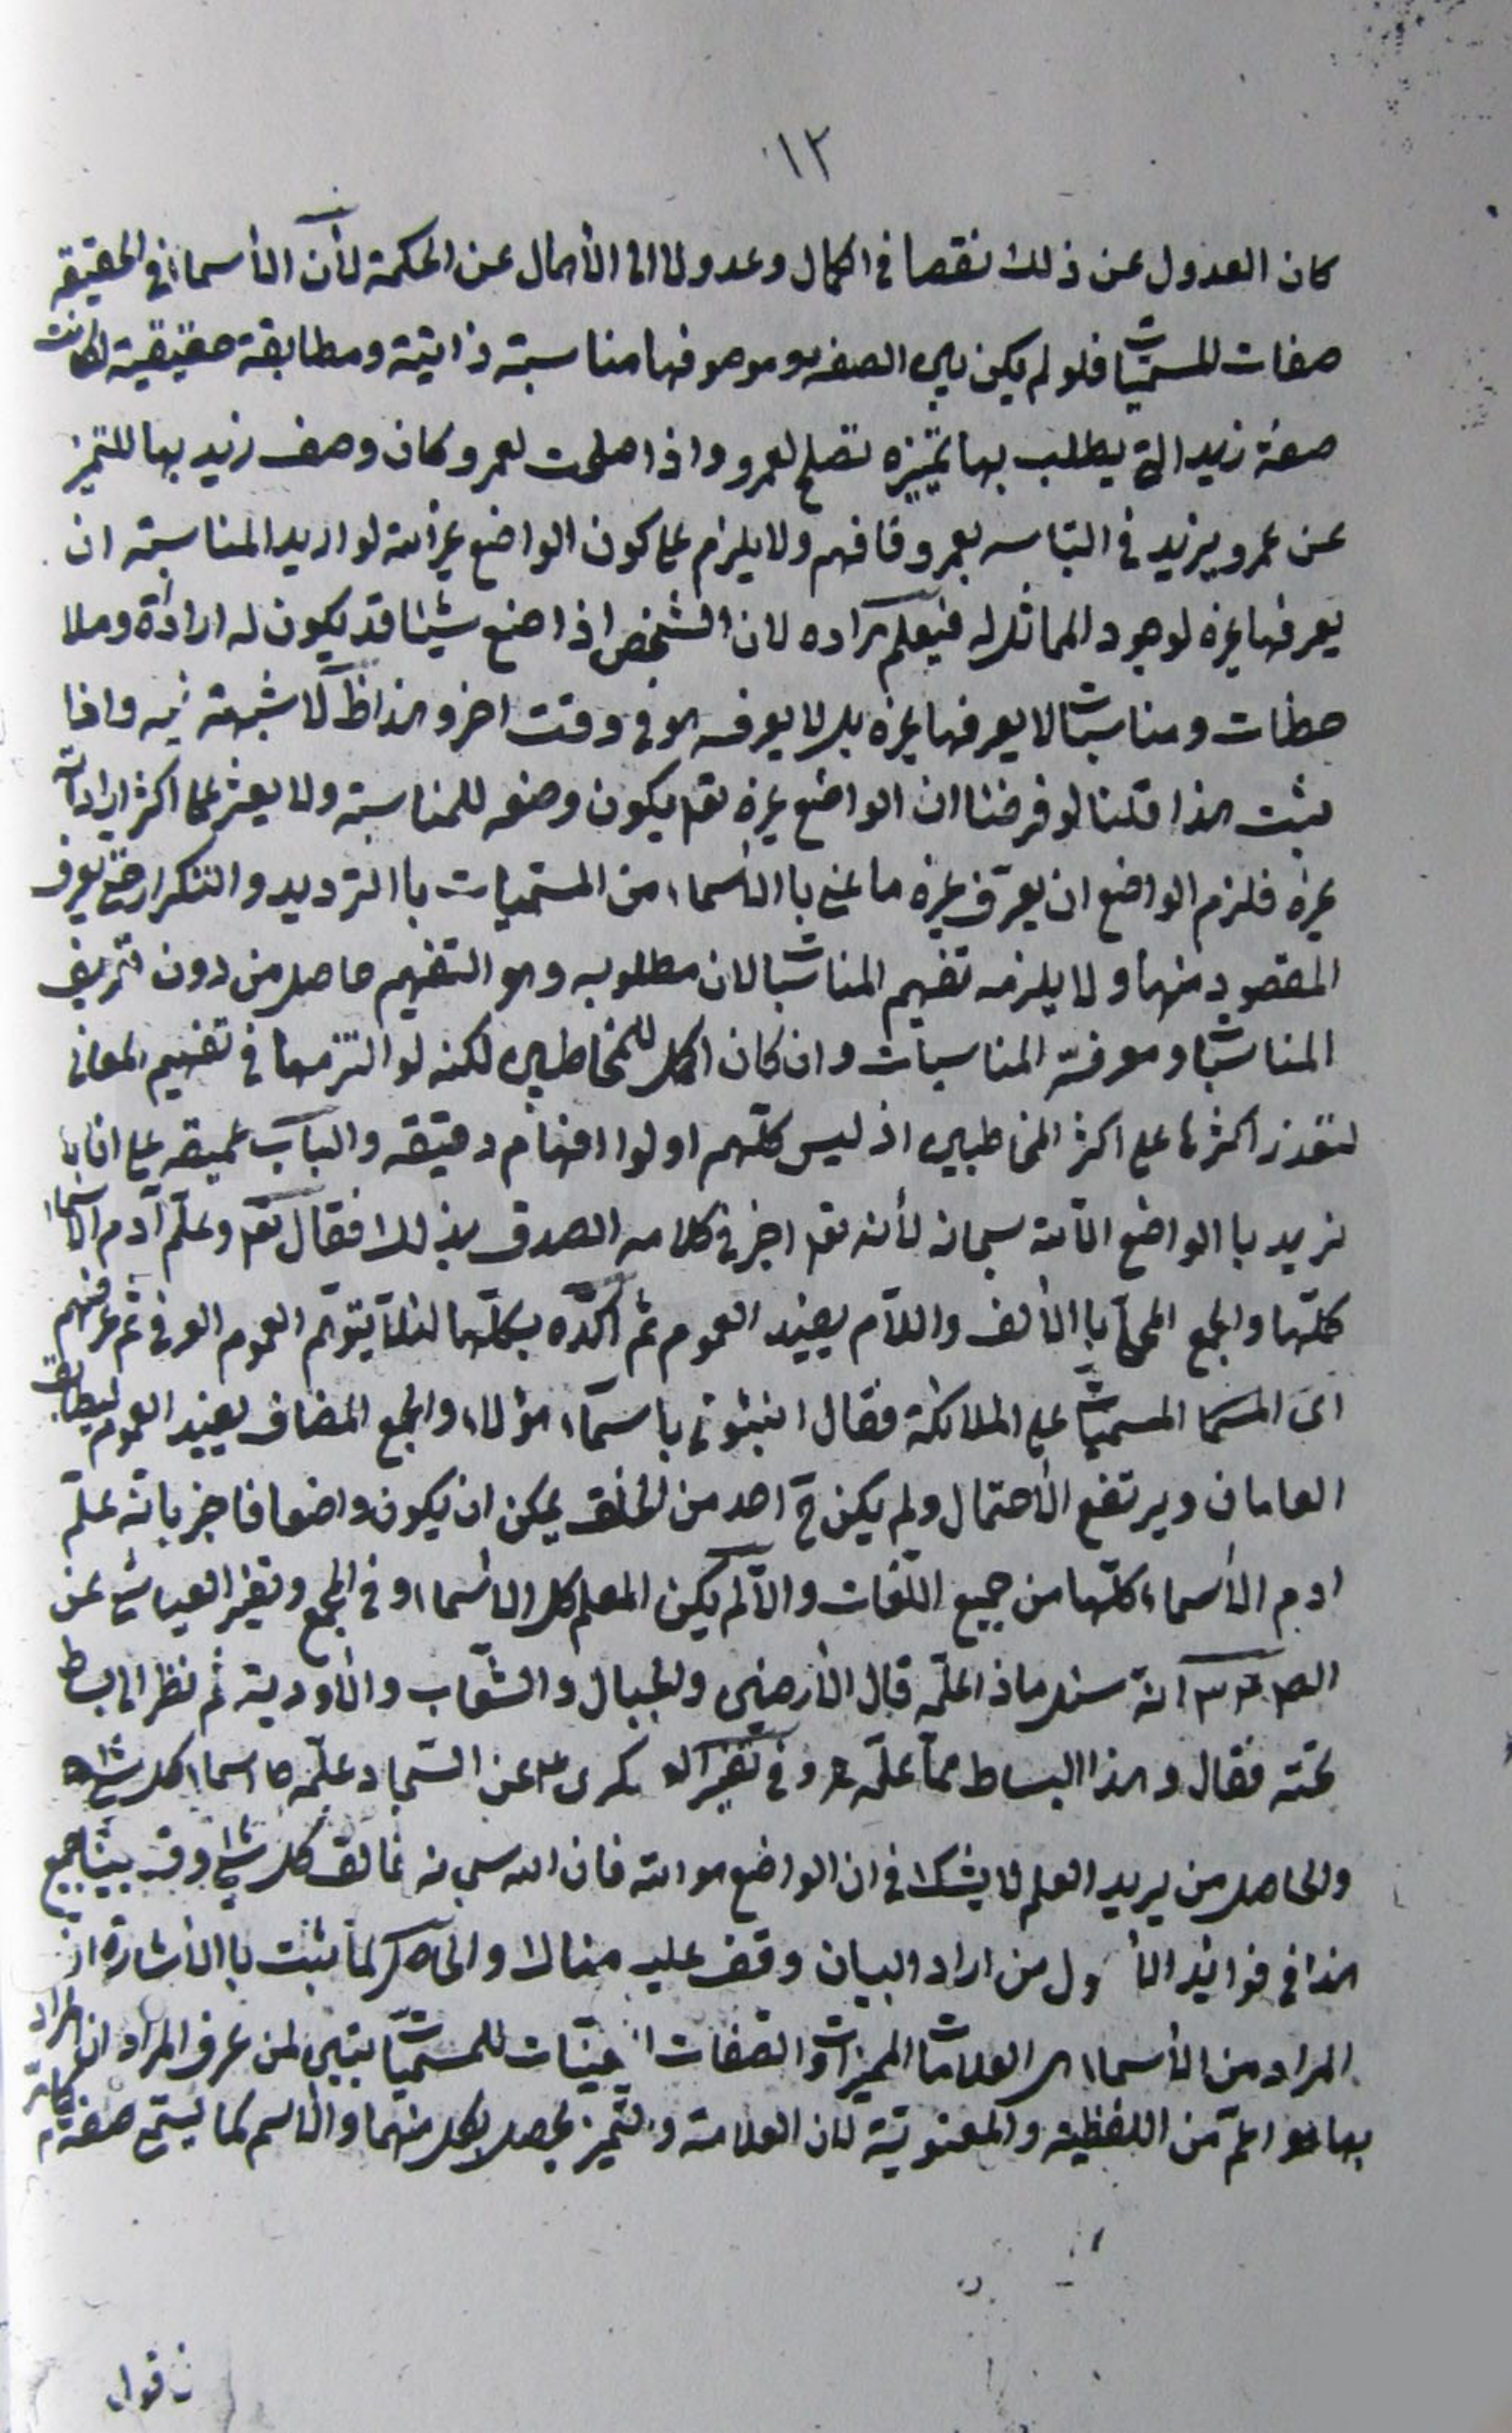 ١٢
كان العدول عن ذلك نقصا في الكمال وعدولا الى الأهمال عن الحكمة لأن الأسماء في الحقيقه
صفات للمسميات فلو لم يكن بين الصفه وموصوفها مناسبة ذاتية ومطابقة حقيقية لكانت
صفة زيد التي يطلب بها تمييزه تصلح لعمرو واذا صلحت لعمرو كان وصف زيد بها للتميز
عن عمرو يزيد في التباسه بعمرو فافهم ولا يلزم على كون الواضع غير الله لو اريد المناسبة ان
يعرفها غيره لوجود المماثل له فيعلم مراده لان الشخص اذا صنع شيئا قد يكون له ارادة وملا
حظات ومناسبات لا يعرفها غيره بل لا يعرفه هو في وقت اخر وهذا ظ لا شبهة فيه واذا
ثبت هذا قلنا لو فرضنا ان الواضع غيره تعم يكون وضعه للمناسبة ولا يعثر على اكثر ارادات
غيره فلزم الواضع ان يعرّف غيره ما عنى باالأسماء من المسميات باالترديد والتكرار حتى يعرف
المقصود منها ولا يلزمه تفهيم المناسبات لان مطلوبه وهو التفهيم حاصل من دون تعريف
المناسبات ومعرفة المناسبات وان كان اكمل للمخاطبين لكنه لو التزمها في تفهيم المعانى
لتعذر اكثرها على اكثر المخاطبين اذ ليس كلّهم اولوا افهام دقيقه والباب عميقه على انا
نريد باالواضع الله سبحانه لأنه تعم اخبر في كلامه الصدق بذلك فقال تعم وعلّم آدم الأسماء
كلّها والجمع المحلّى باالألف واللام يفيد العموم ثم اكّده بكلّها لئلا يتوهّم العموم العرفى ثم عرضهم
اى المسميات على الملائكة فقال انبئونى باسمآء هؤلاء والجمع المضاف يفيد العموم ليطابق
العامان ويرتفع الأحتمال ولم يكن ح احد من الخلق يمكن ان يكون واضعا فاخبر بانه علّم
ادم الأسماء كلّها من جميع اللّغات والّا لم يكن المعلم كل الأسماء وفى المجمع وتفسير العياشى عن
الص انه سئل ماذا علّمه قال الأرضين والجبال والشّعاب والأودية ثم نظر الى بساط
تحته فقال وهذا البساط ممّا علّمه وفى تفسير العسكرى عن السّجاد علّمه اسماء كل شئ
والحاصل من يريد العلم لا يشك في ان الواضع هو الله فان الله سبحانه خالق كل شئ وقد بيّنا جميع
هذا في فوائد الأصول من اراد البيان وقف عليه هنالك والحاصل كما ثبت باالأشارة ان
المراد من الأسماء هى العلامات المميزات والصفات المبيّنات للمسميّات يتبين لمن عرف المراد ان المراد
بها هو اعمّ من اللفظية والمعنوية لان العلامة والتميز يحصل بكل منهما والأسم كما يستمع صفة